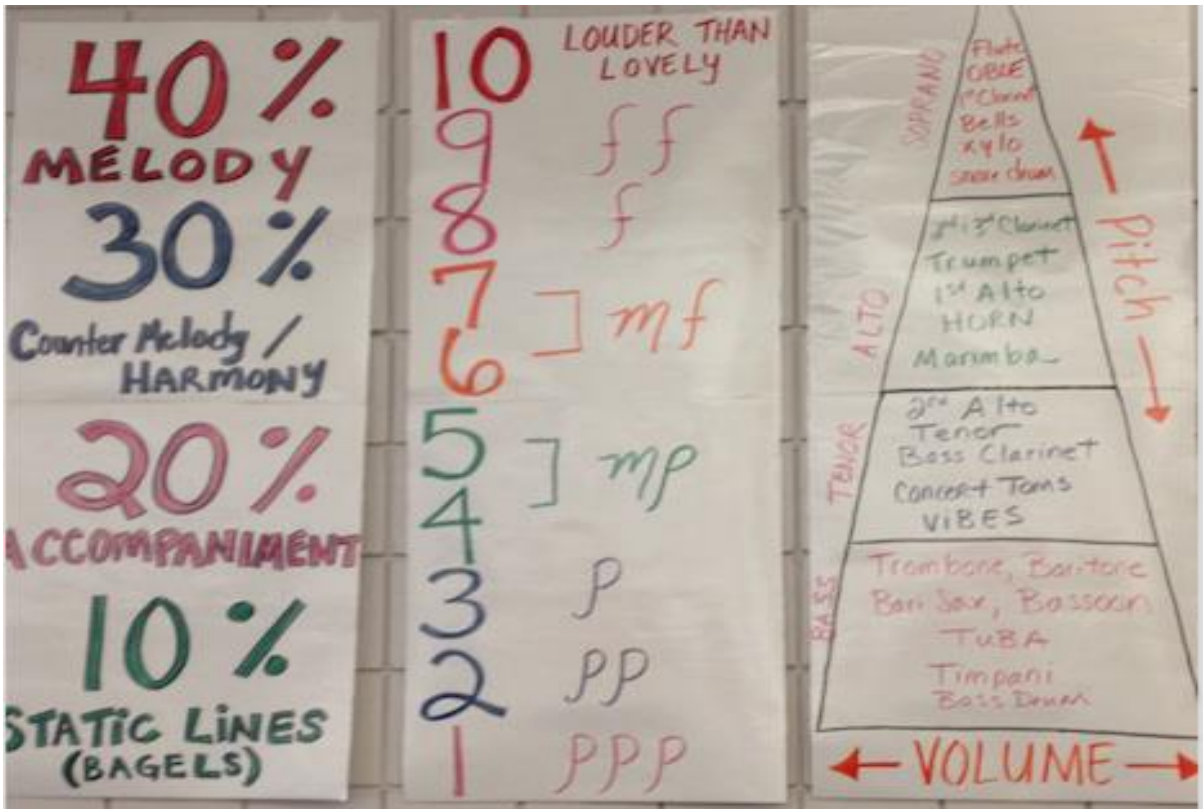 40%
MELODY
30%
Counter Melody /
HARMONY
20%
ACCOMPANIMENT
10%
STATIC LINES
(BAGELS)
10 LOUDER THAN
LOVELY
9 ff
8 f
7
mf
6
5
mp
4
3 p
2 pp
1 ppp
SOPRANO
Flute
OBLE
1st Clarinet
Bells
xylo
snare drum
ALTO
2nd i 3rd Clarinet
Trumpet
1st Alto
HORN
Marimba
TENOR
2nd Alto
Tenor
Bass Clarinet
Concert Toms
ViBES
BASS
Trombone, Baritone
Bari Sax, Bassoon
TUBA
Timpani
Bass Drum
Pitch
VOLUME